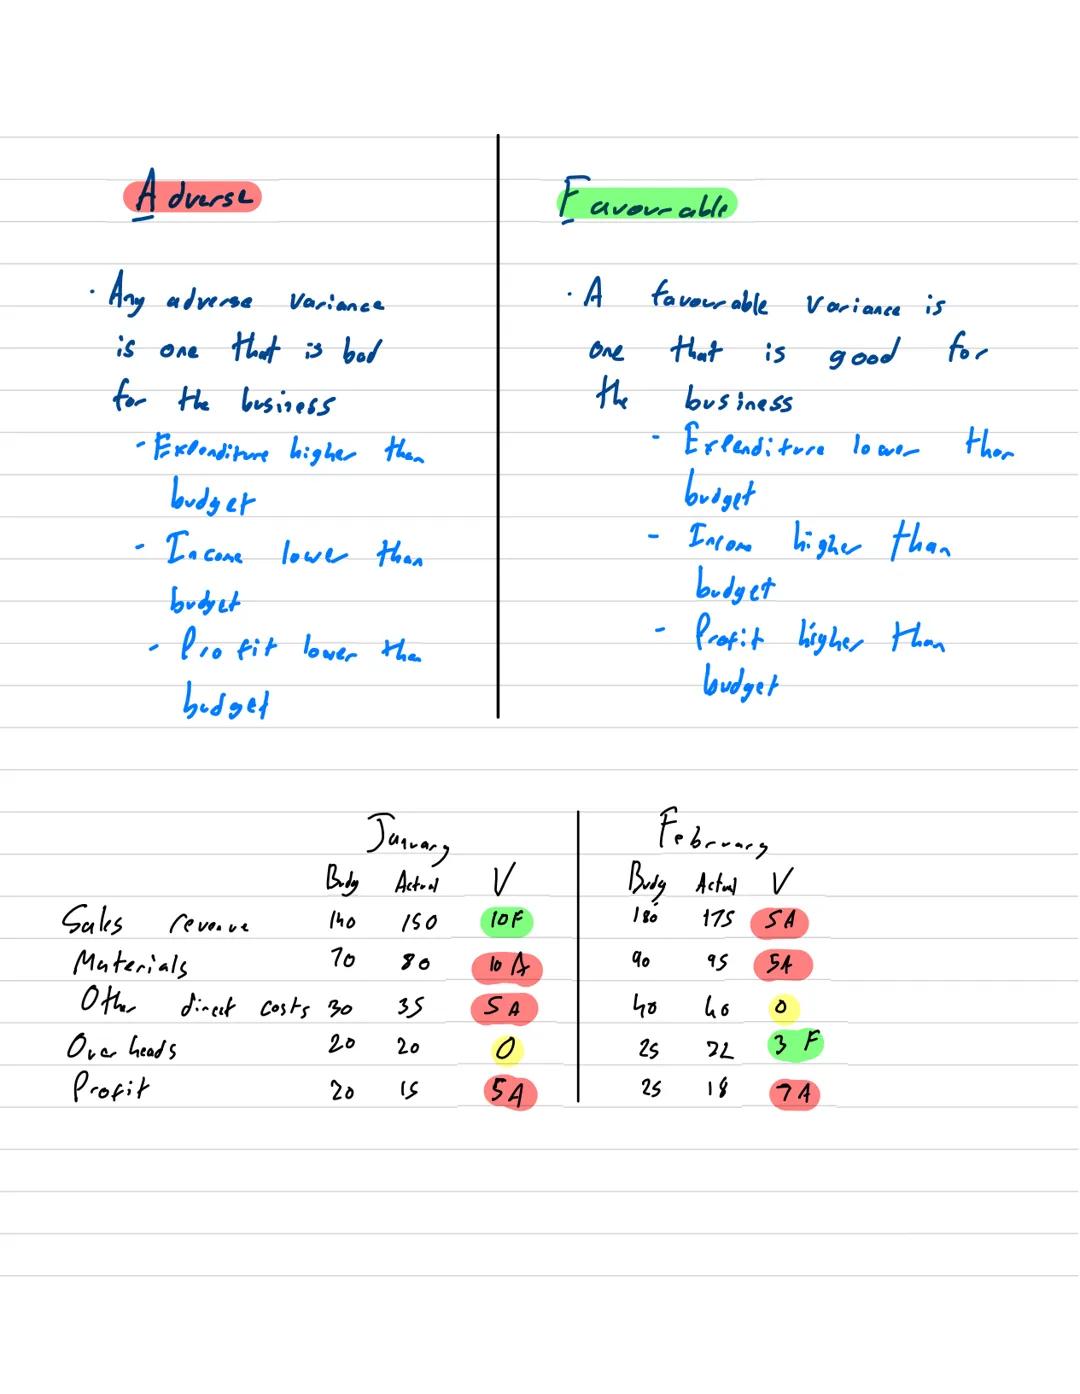 Adverse
· Any adverse variance
is one that is bad
for the business
- Expenditure higher than
budget
- Income lower than
budget
- Profit lower than
budget
Favourable
· A favourable variance is
one that is good for
the business
- Expenditure lower than
budget
- Incom higher than
budget
- Profit higher than
budget
January February
Budg Actual V Budg Actual V
Sales revenue 140 150 10F 180 175 5A
Materials 70 80 10 A 90 95 5A
Other direct costs 30 35 5 A 40 40 0
Overheads 20 20 0 25 22 3 F
Profit 20 15 5A 25 18 7A